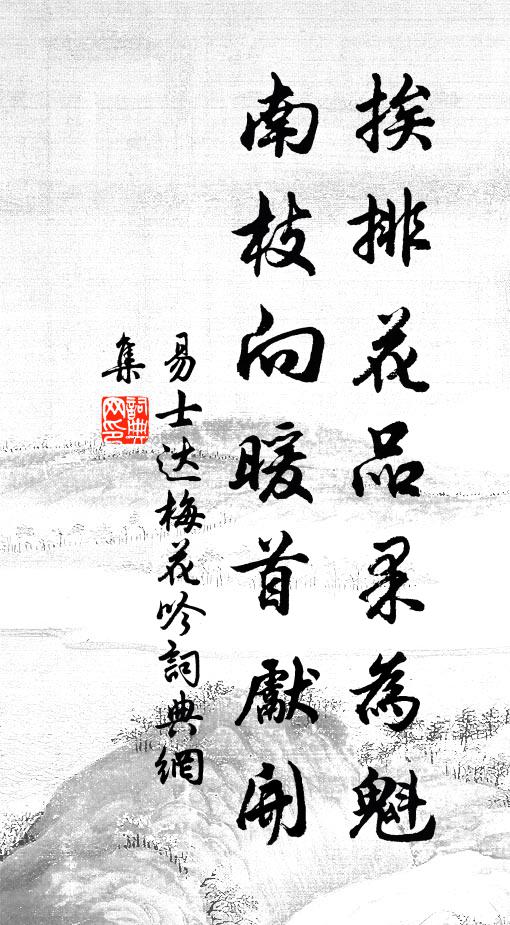 挨排花品果為魁
南枝向暖首獻開
易士达梅花吟詞典網
集
詞典网印